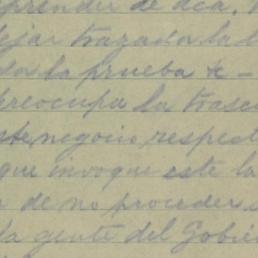 prender de acá.
dejar trazada la l
da la prueba te -
preocupa la trasc
este negocio, respect
que invoque este la
r de no proceder
la gente del Gobie